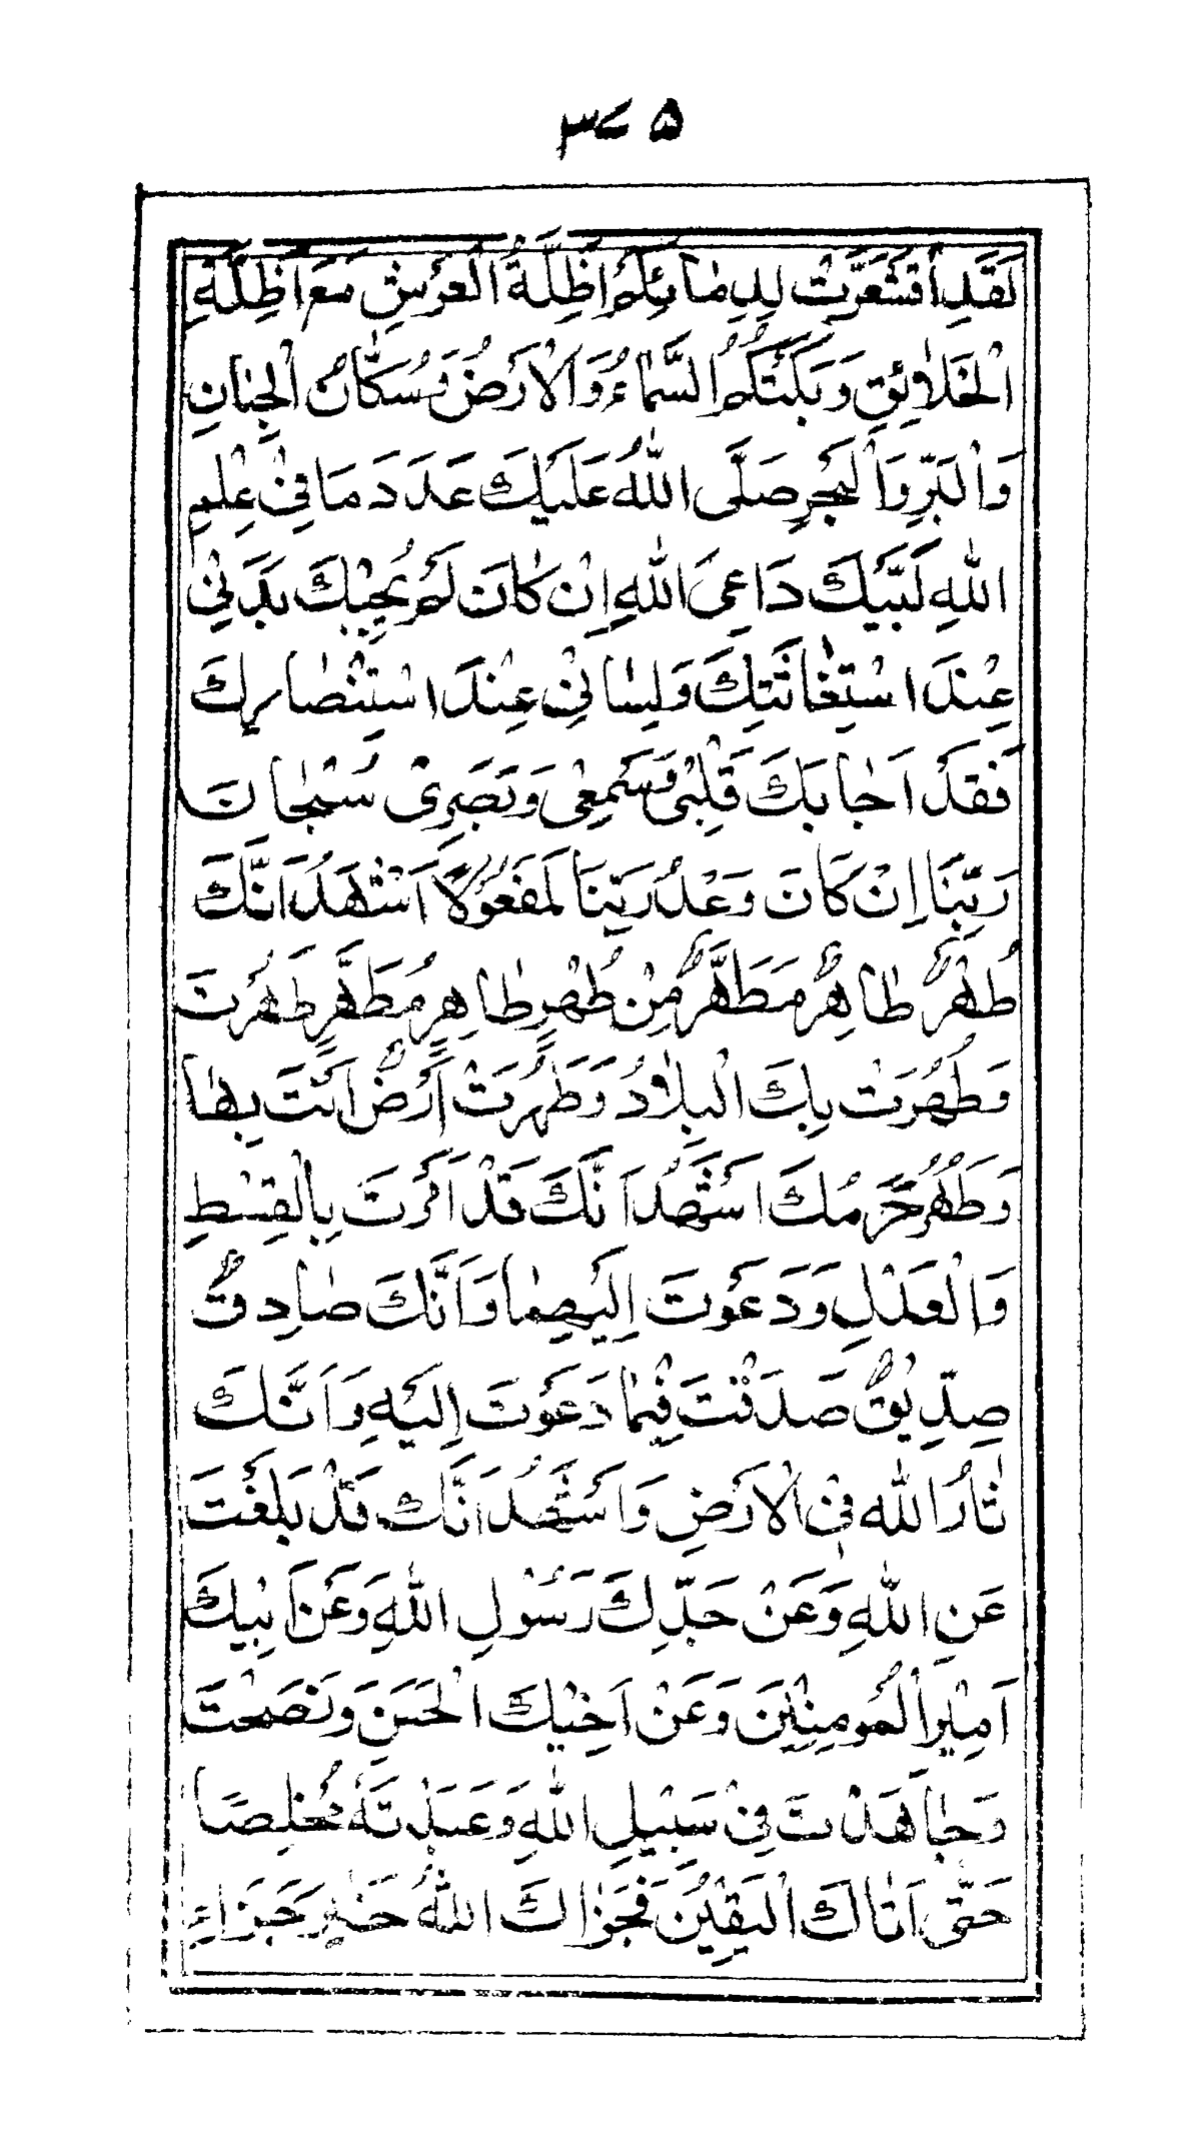 ۳۷۵
لَقَدِ اقْشَعَرَّتْ لِدِمٰائِكُمْ اَظِلَّةُ الْعَرْشِ مَعَ اَظِلَّةِ
الْخَلٰائِقِ وَبَكَتْكُمُ السَّمٰاءُ وَالْاَرْضُ وَسُكّٰانُ الْجِنٰانِ
وَالْبَرِّ وَالْبَحْرِ صَلَّى اللّٰهُ عَلَيْكَ عَدَدَ مَا فِيْ عِلْمِ
اللّٰهِ لَبَّيْكَ دَاعِيَ اللّٰهِ اِنْ كٰانَ لَمْ يُجِبْكَ بَدَنِيْ
عِنْدَ اسْتِغٰاثَتِكَ وَلِسٰانِيْ عِنْدَ اسْتِنْصٰارِكَ
فَقَدْ اَجٰابَكَ قَلْبِيْ وَسَمْعِيْ وَبَصَرِيْ سُبْحٰانَ
رَبِّنَا اِنْ كَانَ وَعْدُ رَبِّنَا لَمَفْعُوْلًا اَشْهَدُ اَنَّكَ
طُهْرٌ طٰاهِرٌ مُطَهَّرٌ مِنْ طُهْرٍ طٰاهِرٍ مُطَهَّرٍ طَهُرْتَ
وَطَهُرَتْ بِكَ الْبِلٰادُ وَطَهُرَتْ اَرْضٌ اَنْتَ بِهٰا
وَطَهُرَ حَرَمُكَ اَشْهَدُ اَنَّكَ قَدْ اَمَرْتَ بِالْقِسْطِ
وَالْعَدْلِ وَدَعَوْتَ اِلَيْهِمٰا وَاَنَّكَ صٰادِقٌ
صِدِّيْقٌ صَدَقْتَ فِيْمٰا دَعَوْتَ اِلَيْهِ وَاَنَّكَ
ثٰارُ اللّٰهِ فِي الْاَرْضِ وَاَشْهَدُ اَنَّكَ قَدْ بَلَّغْتَ
عَنِ اللّٰهِ وَعَنْ جَدِّكَ رَسُوْلِ اللّٰهِ وَعَنْ اَبِيْكَ
اَمِيْرِ الْمُؤْمِنِيْنَ وَعَنْ اَخِيْكَ الْحَسَنِ وَنَصَحْتَ
وَجٰاهَدْتَ فِيْ سَبِيْلِ اللّٰهِ وَعَبَدْتَهُ مُخْلِصًا
حَتّٰى اَتٰاكَ الْيَقِيْنُ فَجَزٰاكَ اللّٰهُ خَيْرَ جَزَاءِ